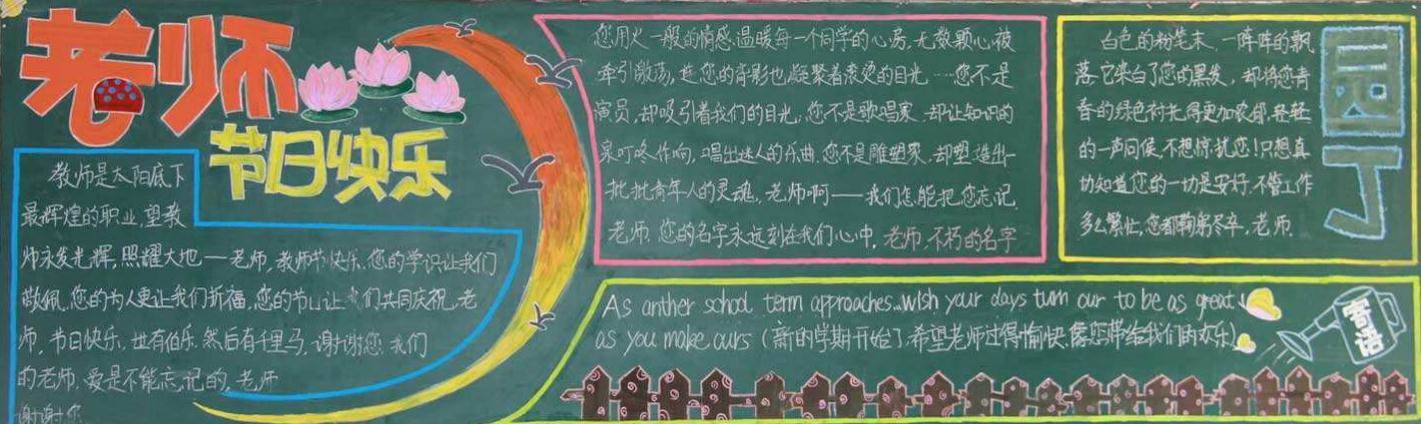 老师
节日快乐
教师是太阳底下
最辉煌的职业，望教
师永发光辉，照耀大地——老师，教师节快乐.您的学识让我们
敬佩，您的为人更让我们折福，您的节日让我们共同庆祝，老
师，节日快乐.世有伯乐.然后有千里马，谢谢您.我们
的老师.爱是不能忘记的，老师
谢谢您
您用火一般的情感温暖每一个同学的心房，无数颗心被
牵引激荡，连您的背影也凝聚着滚烫的目光……您不是
演员，却吸引着我们的目光；您不是歌唱家，却让知识的
泉叮咚作响，唱出迷人的乐曲，您不是雕塑家，却塑造出一
批批青年人的灵魂，老师啊——我们怎能把您忘记.
老师.您的名字永远刻在我们心中，老师，不朽的名字
白色的粉笔末，一阵阵的飘
落，它染白了您的黑发，却将您青
春的绿色衬托得更加浓郁，轻轻
的一声问候，不想惊扰您！只想真
切知道您的一切是安好，不管工作
多么繁忙，您都鞠躬尽卒，老师.
园丁
As anther school term approaches..wish your days turn our to be as great
as you make ours (新的学期开始了.希望老师过得愉快.像您带给我们的欢乐)
寄语